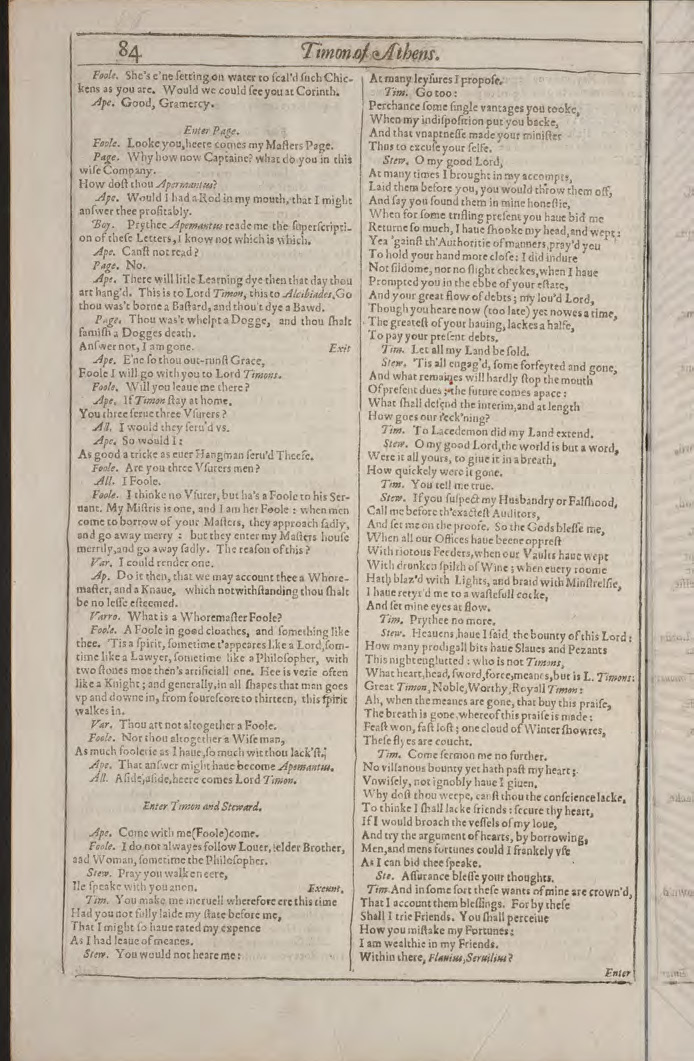 84
Timon of Athens.
Foole. She's e'ne setting on water to scal'd such Chic-
kens as you are. Would we could see you at Corinth.
Ape. Good, Gramercy.
Enter Page.
Foole. Looke you, heere comes my Masters Page.
Page. Why how now Captaine? what do you in this
wise Company.
How dost thou Apermantus?
Ape. Would I had a Rod in my mouth, that I might
answer thee profitably.
Boy. Prythee Apemantus reade me the superscripti-
on of these Letters, I know not which is which.
Ape. Canst not read?
Page. No.
Ape. There will litle Learning dye then that day thou
art hang'd. This is to Lord Timon, this to Alcibiades. Go
thou was't borne a Bastard, and thou't dye a Bawd.
Page. Thou was't whelpt a Dogge, and thou shalt
famish a Dogges death.
Answer not, I am gone. Exit
Ape. E'ne so thou out-runst Grace,
Foole I will go with you to Lord Timons.
Foole. Will you leaue me there?
Ape. If Timon stay at home.
You three serue three Vsurers?
All. I would they seru'd vs.
Ape. So would I:
As good a tricke as euer Hangman seru'd Theefe.
Foole. Are you three Vsurers men?
All. I Foole.
Foole. I thinke no Vsurer, but ha's a Foole to his Ser-
uant. My Mistris is one, and I am her Foole: when men
come to borrow of your Masters, they approach sadly,
and go away merry: but they enter my Masters house
merrily, and go away sadly. The reason of this?
Var. I could render one.
Ap. Do it then, that we may account thee a Whore-
master, and a Knaue, which notwithstanding thou shalt
be no lesse esteemed.
Varro. What is a Whoremaster Foole?
Foole. A Foole in good cloathes, and something like
thee. 'Tis a spirit, sometime t'appeares like a Lord, som-
time like a Lawyer, sometime like a Philosopher, with
two stones moe then's artificiall one. Hee is verie often
like a Knight; and generally, in all shapes that man goes
vp and downe in, from fourescore to thirteen, this spirit
walkes in.
Var. Thou art not altogether a Foole.
Foole. Nor thou altogether a Wise man,
As much foolerie as I haue, so much wit thou lack'st.
Ape. That answer might haue become Apemantus.
All. Aside, aside, heere comes Lord Timon.
Enter Timon and Steward.
Ape. Come with me (Foole) come.
Foole. I do not alwayes follow Louer, elder Brother,
aad Woman, sometime the Philosopher.
Stew. Pray you walke neere,
Ile speake with you anon. Exeunt.
Tim. You make me meruell wherefore ere this time
Had you not fully laide my state before me,
That I might so haue rated my expence
As I had leaue of meanes.
Stew. You would not heare me:
At many leysures I propose.
Tim. Go too:
Perchance some single vantages you tooke,
When my indisposition put you backe,
And that vnaptnesse made your minister
Thus to excuse your selfe.
Stew. O my good Lord,
At many times I brought in my accompts,
Laid them before you, you would throw them off,
And say you found them in mine honestie,
When for some trifling present you haue bid me
Returne so much, I haue shooke my head, and wept:
Yea 'gainst th'Authoritie of manners, pray'd you
To hold your hand more close: I did indure
Not sildome, nor no slight checkes, when I haue
Prompted you in the ebbe of your estate,
And your great flow of debts; my lou'd Lord,
Though you heare now (too late) yet nowes a time,
The greatest of your hauing, lackes a halfe,
To pay your present debts.
Tim. Let all my Land be sold.
Stew. 'Tis all engag'd, some forfeyted and gone,
And what remaines will hardly stop the mouth
Of present dues; the future comes apace:
What shall defend the interim, and at length
How goes our reck'ning?
Tim. To Lacedemon did my Land extend.
Stew. O my good Lord, the world is but a word,
Were it all yours, to giue it in a breath,
How quickely were it gone.
Tim. You tell me true.
Stew. If you suspect my Husbandry or Falshood,
Call me before th'exactest Auditors,
And set me on the proofe. So the Gods blesse me,
When all our Offices haue beene opprest
With riotous Feeders, when our Vaults haue wept
With drunken spilth of Wine; when euery roome
Hath blaz'd with Lights, and braid with Minstrelsie,
I haue retyr'd me to a wastefull cocke,
And set mine eyes at flow.
Tim. Prythee no more.
Stew. Heauens, haue I said, the bounty of this Lord:
How many prodigall bits haue Slaues and Pezants
This night englutted: who is not Timons,
What heart, head, sword, force, meanes, but is L. Timons:
Great Timon, Noble, Worthy, Royall Timon:
Ah, when the meanes are gone, that buy this praise,
The breath is gone, whereof this praise is made:
Feast won, fast lost; one cloud of Winter showres,
These flyes are coucht.
Tim. Come sermon me no further.
No villanous bounty yet hath past my heart;
Vnwisely, not ignobly haue I giuen.
Why dost thou weepe, canst thou the conscience lacke,
To thinke I shall lacke friends: secure thy heart,
If I would broach the vessels of my loue,
And try the argument of hearts, by borrowing,
Men, and mens fortunes could I frankely vse
As I can bid thee speake.
Ste. Assurance blesse your thoughts.
Tim. And in some sort these wants of mine are crown'd,
That I account them blessings. For by these
Shall I trie Friends. You shall perceiue
How you mistake my Fortunes:
I am wealthie in my Friends.
Within there, Flauius, Seruilius?
Enter